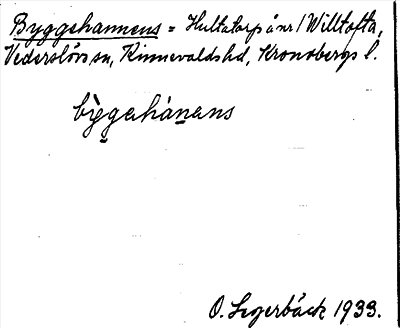 Byggehannens = Hultatorp änr 1 Willtofta,
Vederslövs sn, Kinnevalds hd, Kronobergs l.
bỳg̲ahán̲ans
O. Segerbäck 1933.